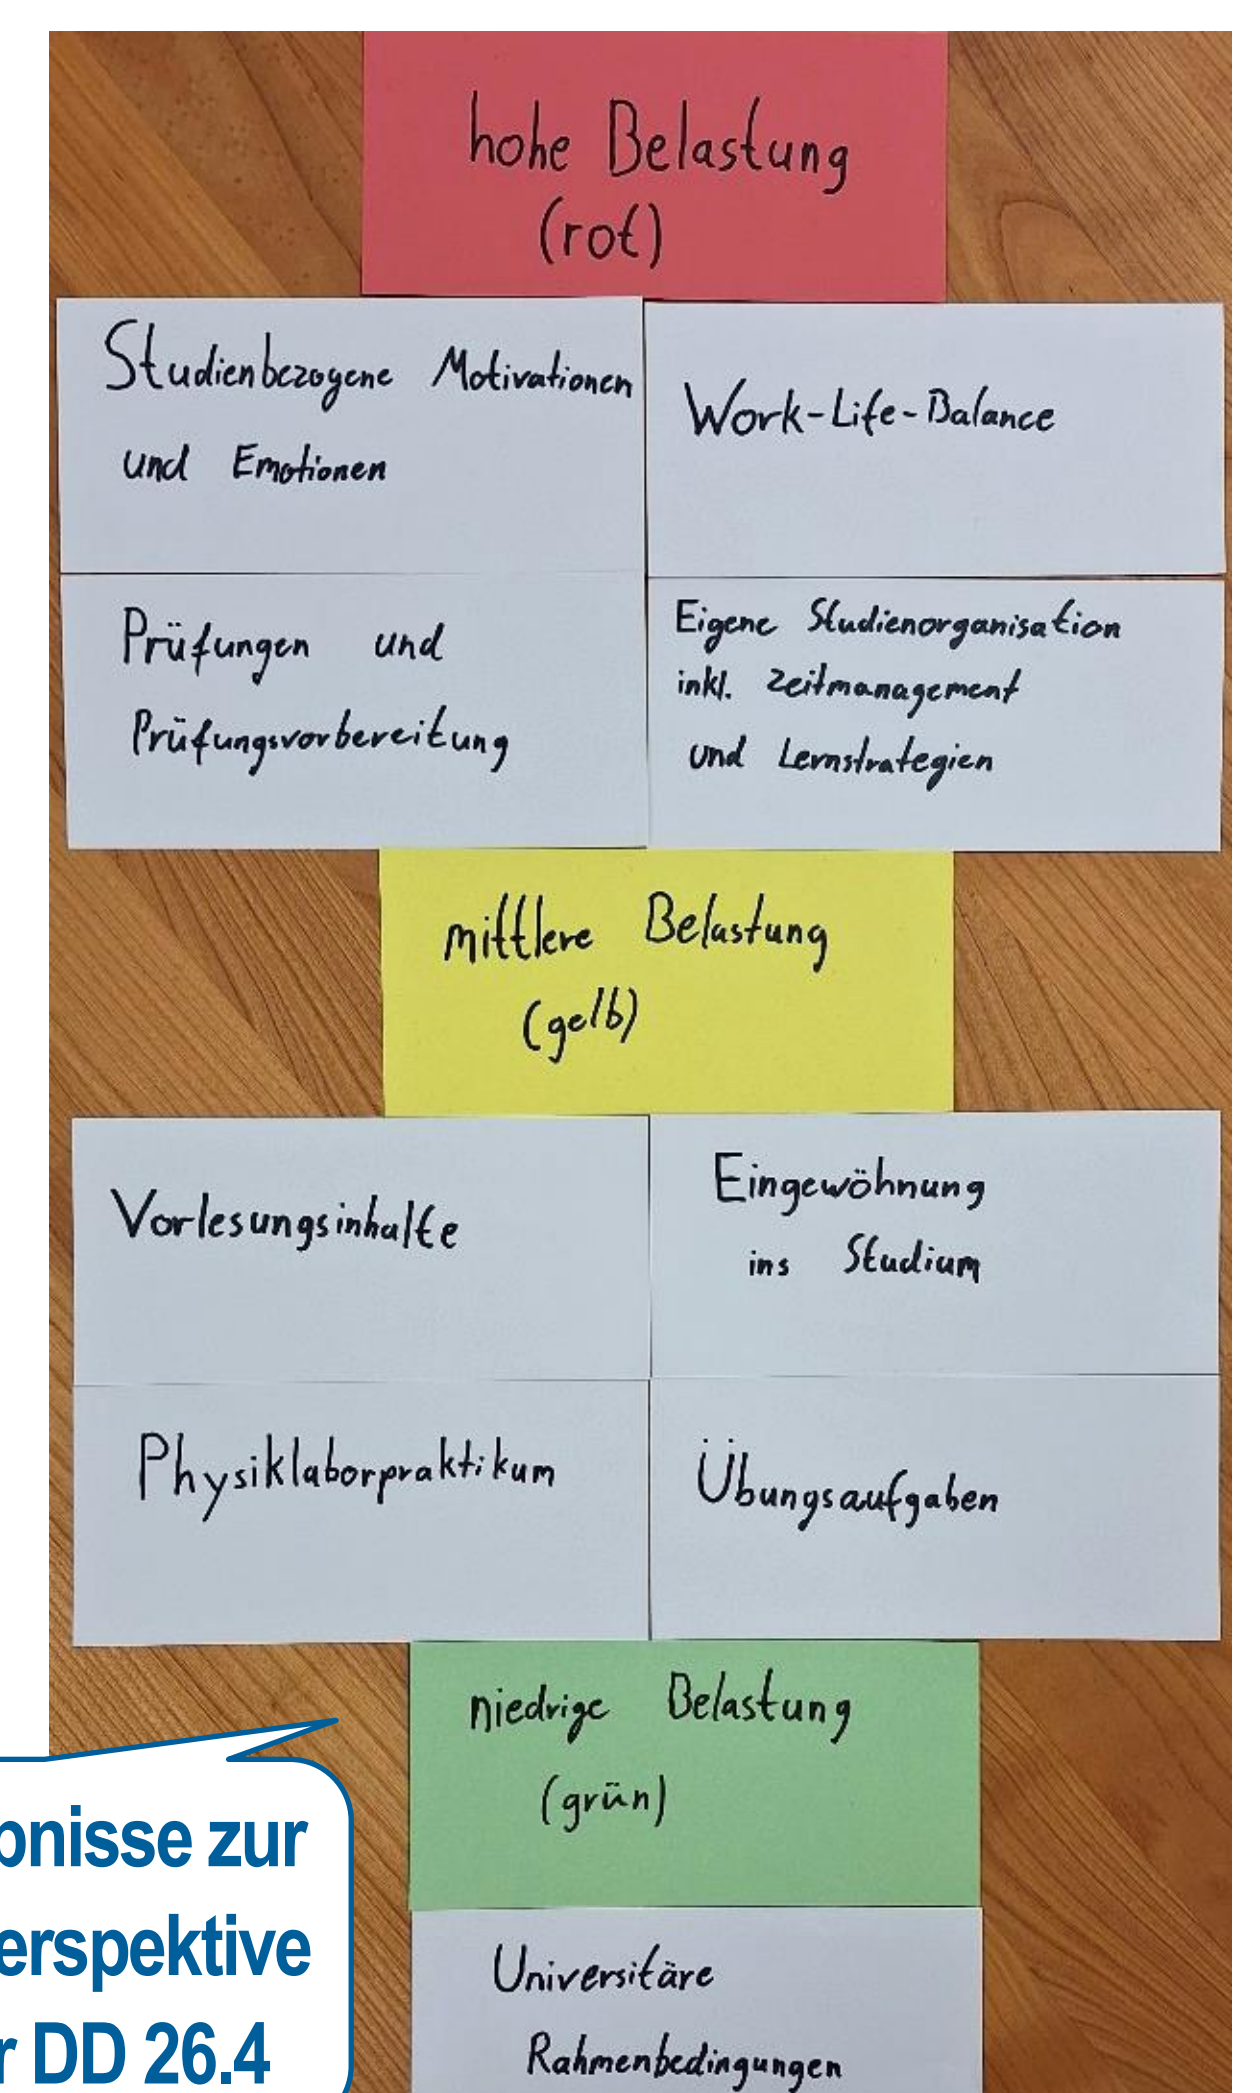 hohe Belastung
(rot)
Studienbezogene Motivationen
und Emotionen
Work-Life-Balance
Prüfungen und
Prüfungsvorbereitung
Eigene Studienorganisation
inkl. Zeitmanagement
und Lernstrategien
mittlere Belastung
(gelb)
Vorlesungsinhalte
Eingewöhnung
ins Studium
Physiklaborpraktikum
Übungsaufgaben
niedrige Belastung
(grün)
Universitäre
Rahmenbedingungen
bnisse zur
erspektive
r DD 26.4